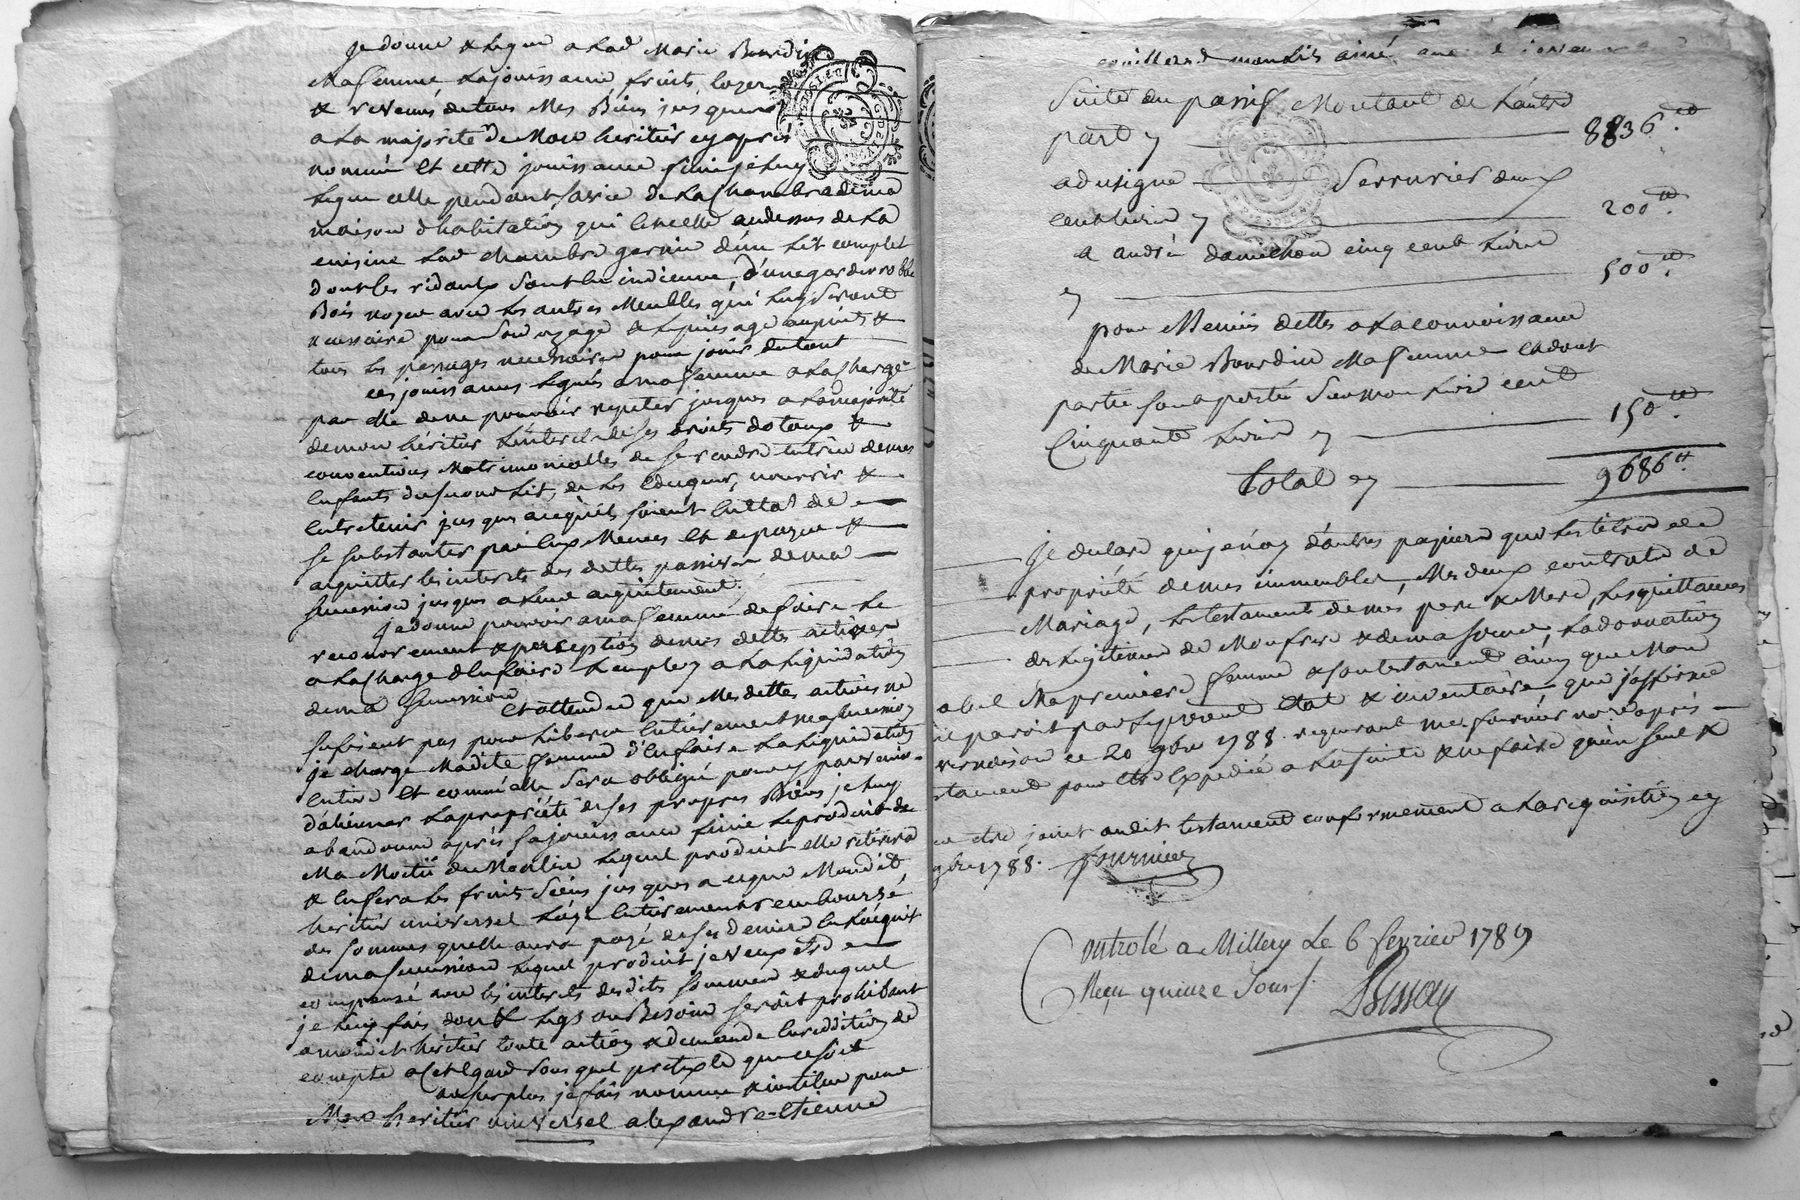 Je donne & legue a lad Marie Bourdin
Ma femme la jouissance fruits loyers
& revenus de tous Mes Biens jusques
a la majorité de Mon heritier cy apres
nommé et cette jouissance finie je luy
legue celle pendant sa vie de la chambre de ma
maison d'habitation qui est celle au dessus de la
cuisine lad chambre garnie d'un lit complet
dont les ridaux sont en indienne, d'une garderobbe
Bois noyer avec les autres Meubles qui luy seront
necessaire pour son usage &
tous les passages necessaires pour jouir du tout
ces jouissances leguées a ma femme a la charge
par elle de ne pouvoir repeter jusques a la majorité
de mon héritier l'interet de ses droits dotaux &
conventions Matrimonialles de se rendre tutrice de mes
Enfants du second lit, de les Eduquer, nourrir &
Entretenir jusques a ce qu'ils soient En Etat de
se substanter par Eux Memes et de payer &
acquitter les interets des dettes passives de ma
succession jusques a leur acquittement.
Je donne pouvoir a ma femme de faire le
recouvrement & perception de mes dettes actives
a la charge d'En faire l'employ a la liquidation
de ma succession
Et attendu que Mes dettes actives ne
sufisent pas pour liberer Entierement ma succession
je charge Madite femme d'En faire la liquidation
Entiere Et comme elle sera obligée pour y parvenir
d'aliener la propriété de ses propres Biens je luy
abandonne après sa jouissance finie le produit de
Ma Moitié du Moulin lequel produit elle retirera
& En fera les fruits siens jusques a ce que Mondit
heritier universel l'aye Entierement remboursé
des sommes quelle aura payé de ses deniers En l'acquit
de ma succession lequel produit je veux etre
compensé avec les interets desdites sommes & duquel
je luy fais don & legs au Besoin serait prohibant
a mondit héritier toute action & demande En reddition de
compte a cet Egard sous quel pretexte que ce soit
au surplus je fais nomme & institue pour
Mon heritier universel alexandre Etienne
Suite du passif Montant de l'autre
part cy 8836 ₶
a du signe Serrurier deux
cent livres cy 200 ₶
a andré damichon cinq cent livres
cy 500 ₶
pour Menues dettes a la connoissance
de Marie Bourdin Ma femme et dont
partie sont portées sur mon livre cent
Cinquante livres cy 150 ₶
Total cy 9686 ₶
Je declare que je n'ay d'autres papiers que les titres de
propriété de mes immeubles, Mes deux contrats de
Mariage, les testaments de mes pere & Mere, les quittances
de legitimes de Mon frere & de ma soeur, la donation
Ma premiere femme & son testament ainsy que Mon
il paroit par le present Etat & inventaire que j'affirme
ce 20 9bre 1788. requerant me fournier no.re apres
pour Etre Expedié a la suite & ne faire qu'un seul &
Etre joint audit testament conformement a la requisition cy
9bre 1788. Fournier
Controlé a Millery Le 6 fevrier 1789
Reçu quinze Sous